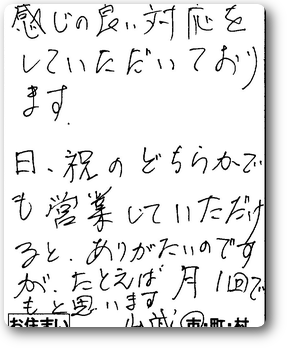 感じの良い対応を
していただいており
ます.
日、祝のどちらかで
も営業していただけ
ると、ありがたいのです
が、たとえば月1回で
もと思います
お住まい 市・町・村